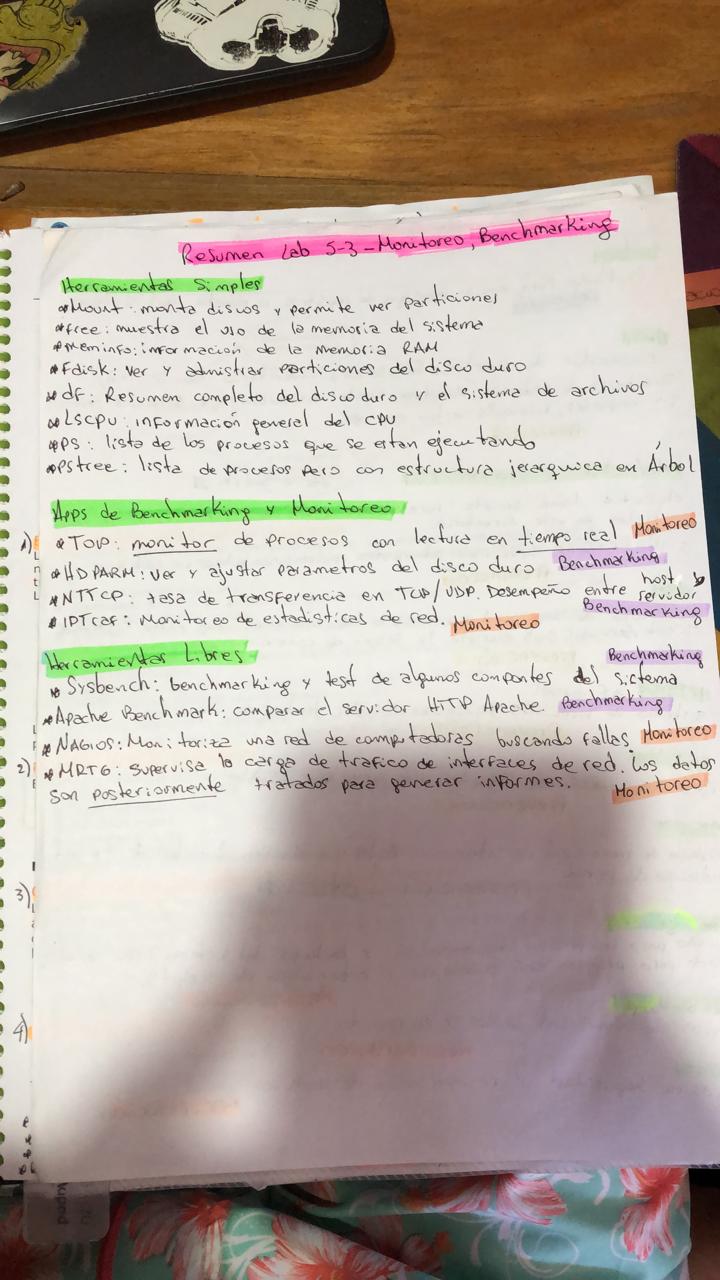 Resumen Lab 5-3 - Monitoreo, Benchmarking
Herramientas Simples
* Mount: monta discos y permite ver particiones
* free: muestra el uso de la memoria del sistema
* meminfo: información de la memoria RAM
* Fdisk: ver y admistrar particiones del disco duro
* df: Resumen completo del disco duro y el sistema de archivos
* LSCPU: información general del CPU
* PS: lista de los procesos que se estan ejecutando
* Pstree: lista de procesos pero con estructura jerarquica en Árbol
Apps de Benchmarking y Monitoreo
* TOP: monitor de procesos con lectura en tiempo real Monitoreo
* HDPARM: ver y ajustar parametros del disco duro Benchmarking
* NTTCP: tasa de transferencia en TCP/UDP. Desempeño entre host y servidor
Benchmarking
* IPTraf: Monitoreo de estadisticas de red. Monitoreo
Herramientas Libres
Benchmarking
* Sysbench: benchmarking y test de algunos compontes del sistema
* Apache Benchmark: comparar el servidor HTTP Apache. Benchmarking
* NAGIOS: Monitoriza una red de computadoras buscando fallas Monitoreo
* MRTG: Supervisa la carga de trafico de interfaces de red. Los datos
son posteriormente tratados para generar informes. Monitoreo
1)
2)
3)
4)